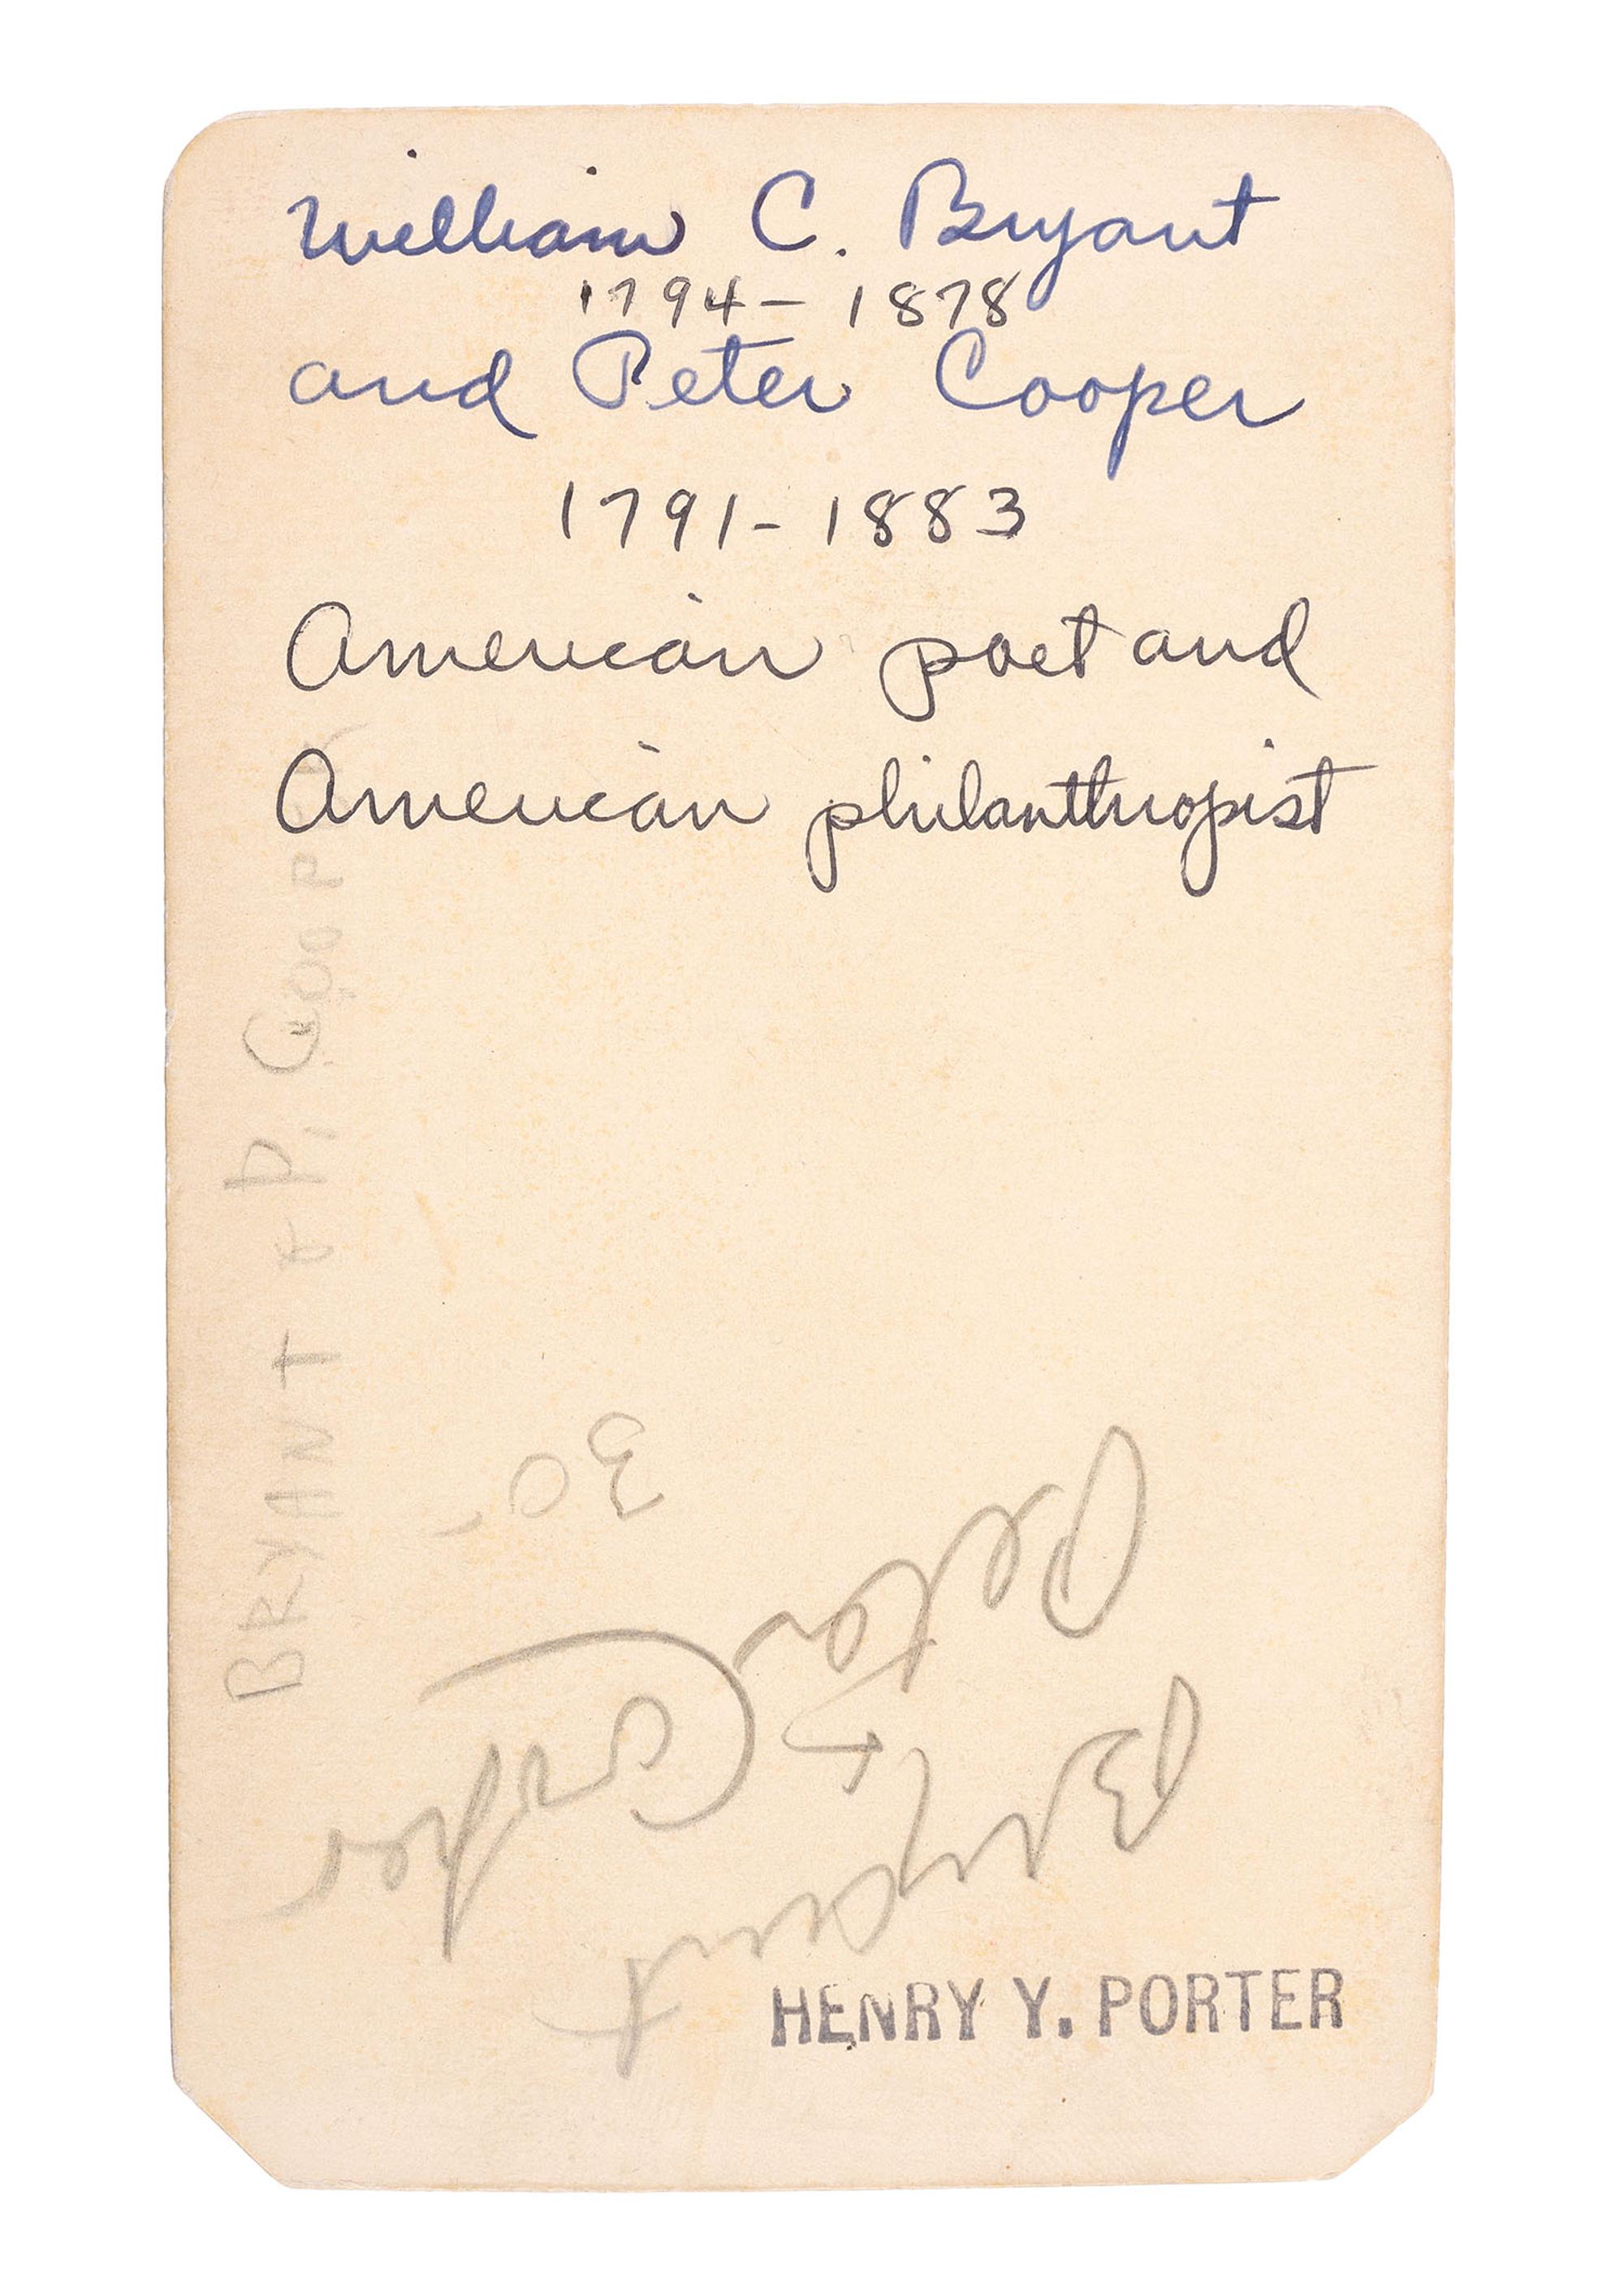 William C. Bryant
1794 - 1878
and Peter Cooper
1791 - 1883
American poet and
American philanthropist
BRYANT & P. COOPER
30-
Peter
Cooper
&
Bryant
HENRY Y. PORTER